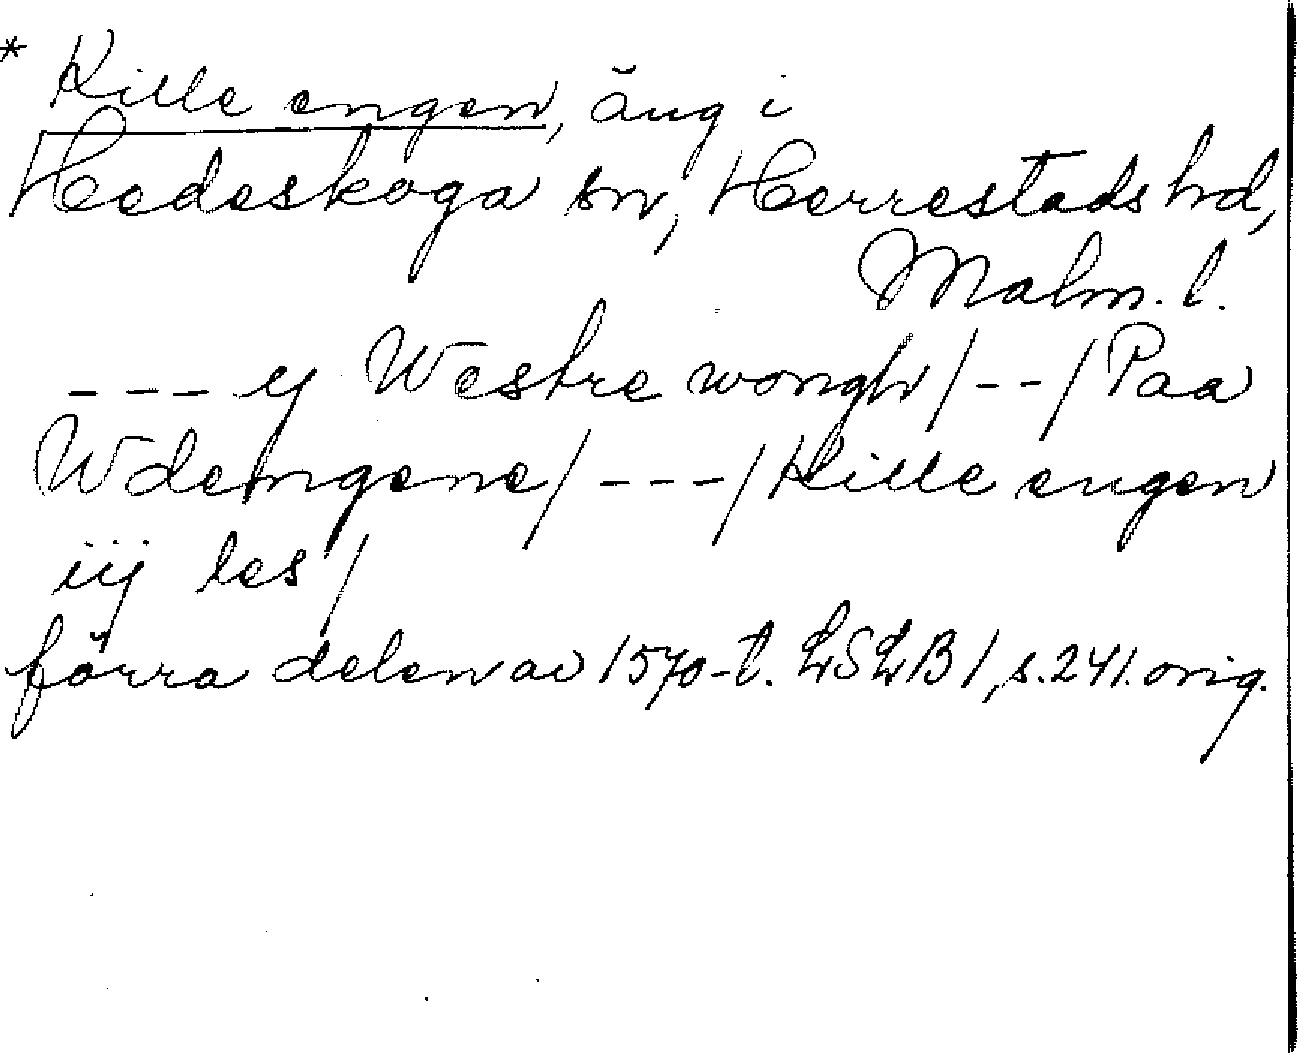 * Kille engen, äng i
Hedeskoga sn, Herrestads hd,
Malm. l.
--- y Westre wongh/--/Paa
Wdengene/---/Kille engen
iij les/
förra delen av 1570-t. LSLB1, s.241. orig.